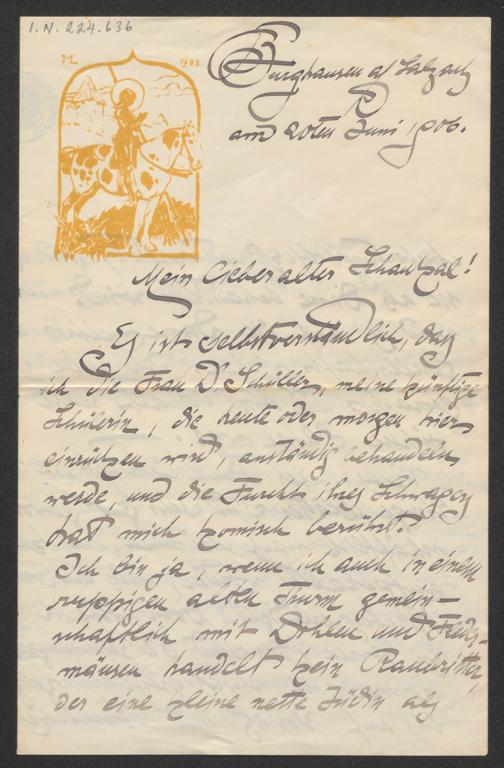 I.N. 224.636
ML 1903
Burghausen a/ Salzach
am 20ten Juni 1906.
Mein lieber alter Schaukal!
Es ist selbstverständlich, daß
ich die Frau Dr. Schüller, meine künftige
Schülerin, die heute oder morgen hier
einrücken wird, anständig behandeln
werde, und die Furcht ihres Schwagers
hat mich komisch berührt.
Ich bin ja, wenn ich auch in einem
ruppigen alten Turm gemein-
schaftlich mit Dohlen und Fleder-
mäusen haust kein Raubritter,
der eine kleine nette Jüdin als